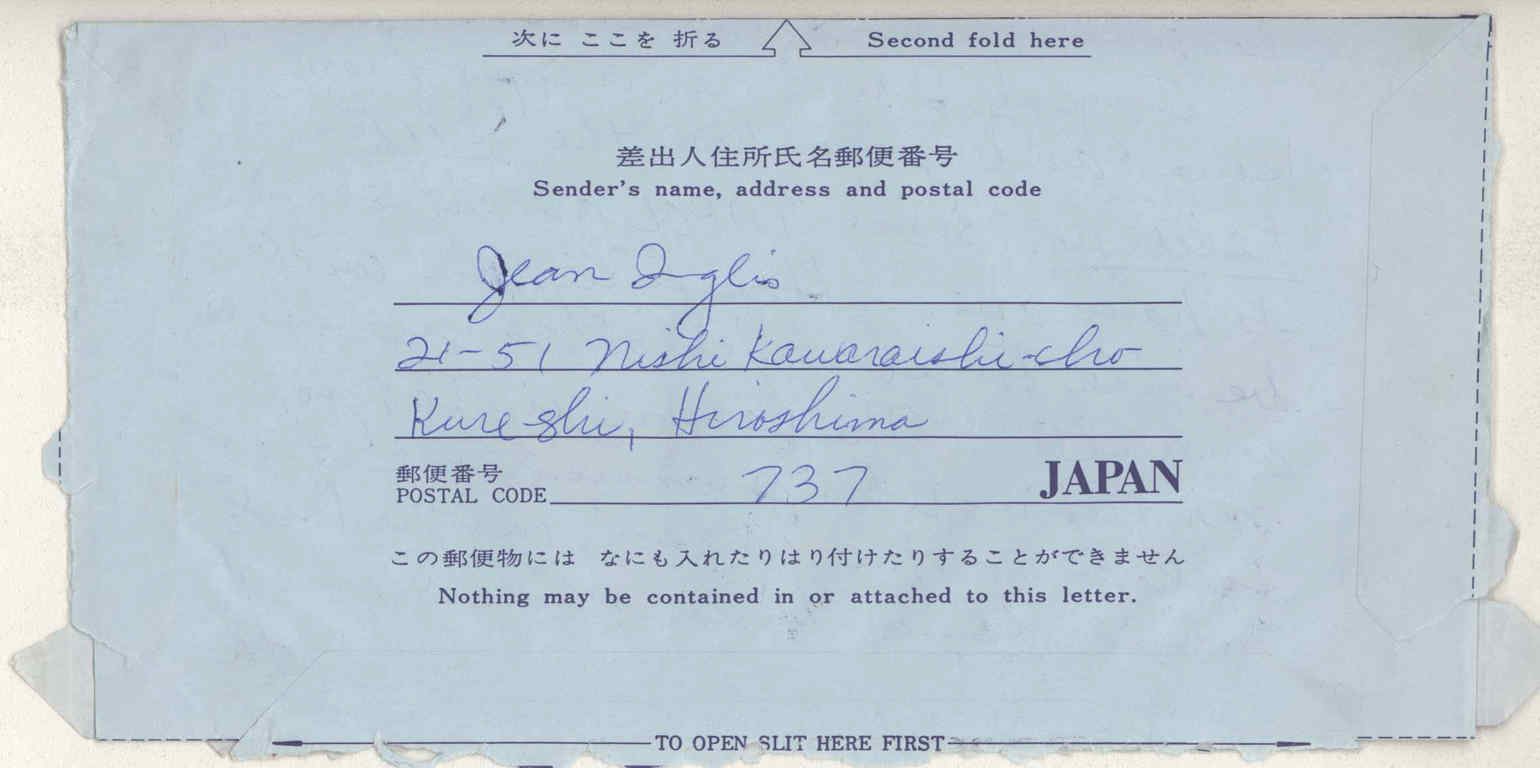 次に ここを 折る Second fold here
差出人住所氏名郵便番号
Sender's name, address and postal code
Jean Inglis
21-51 Nishi Kawaraishi-cho
Kure-shi, Hiroshima
郵便番号
POSTAL CODE 737 JAPAN
この郵便物には なにも入れたりはり付けたりすることができません
Nothing may be contained in or attached to this letter.
TO OPEN SLIT HERE FIRST